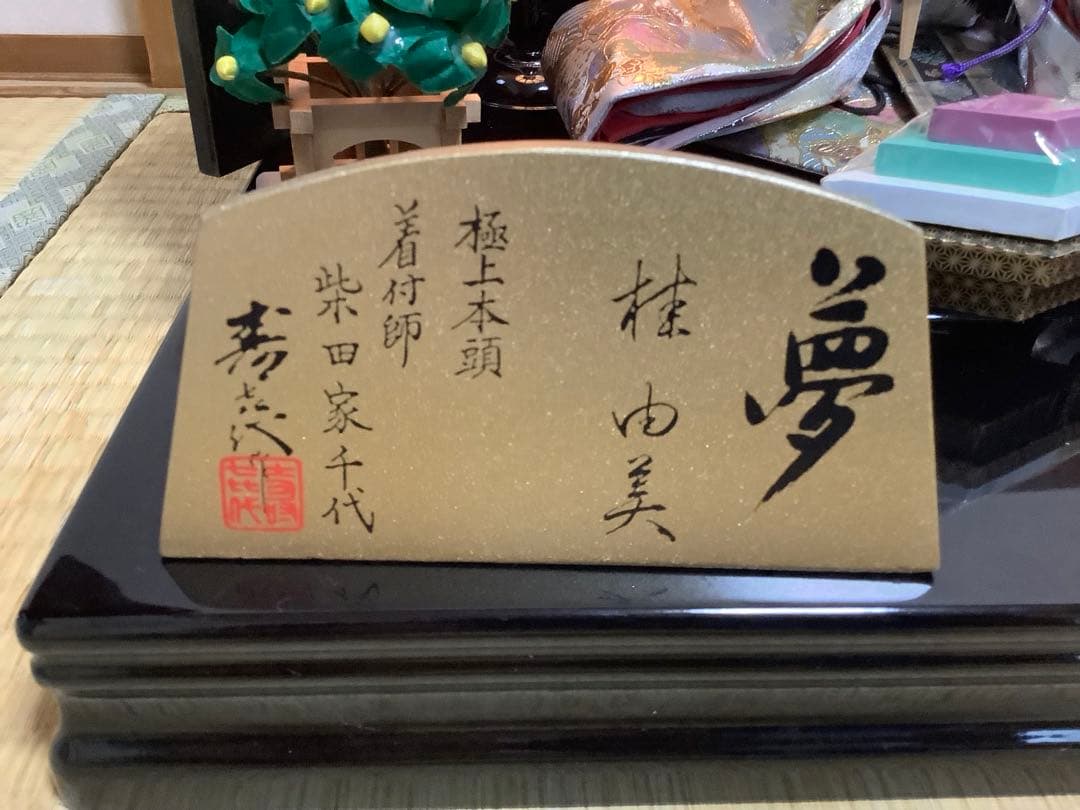 夢
桂由美
極上本頭
着付師
柴田家千代
寿喜代作